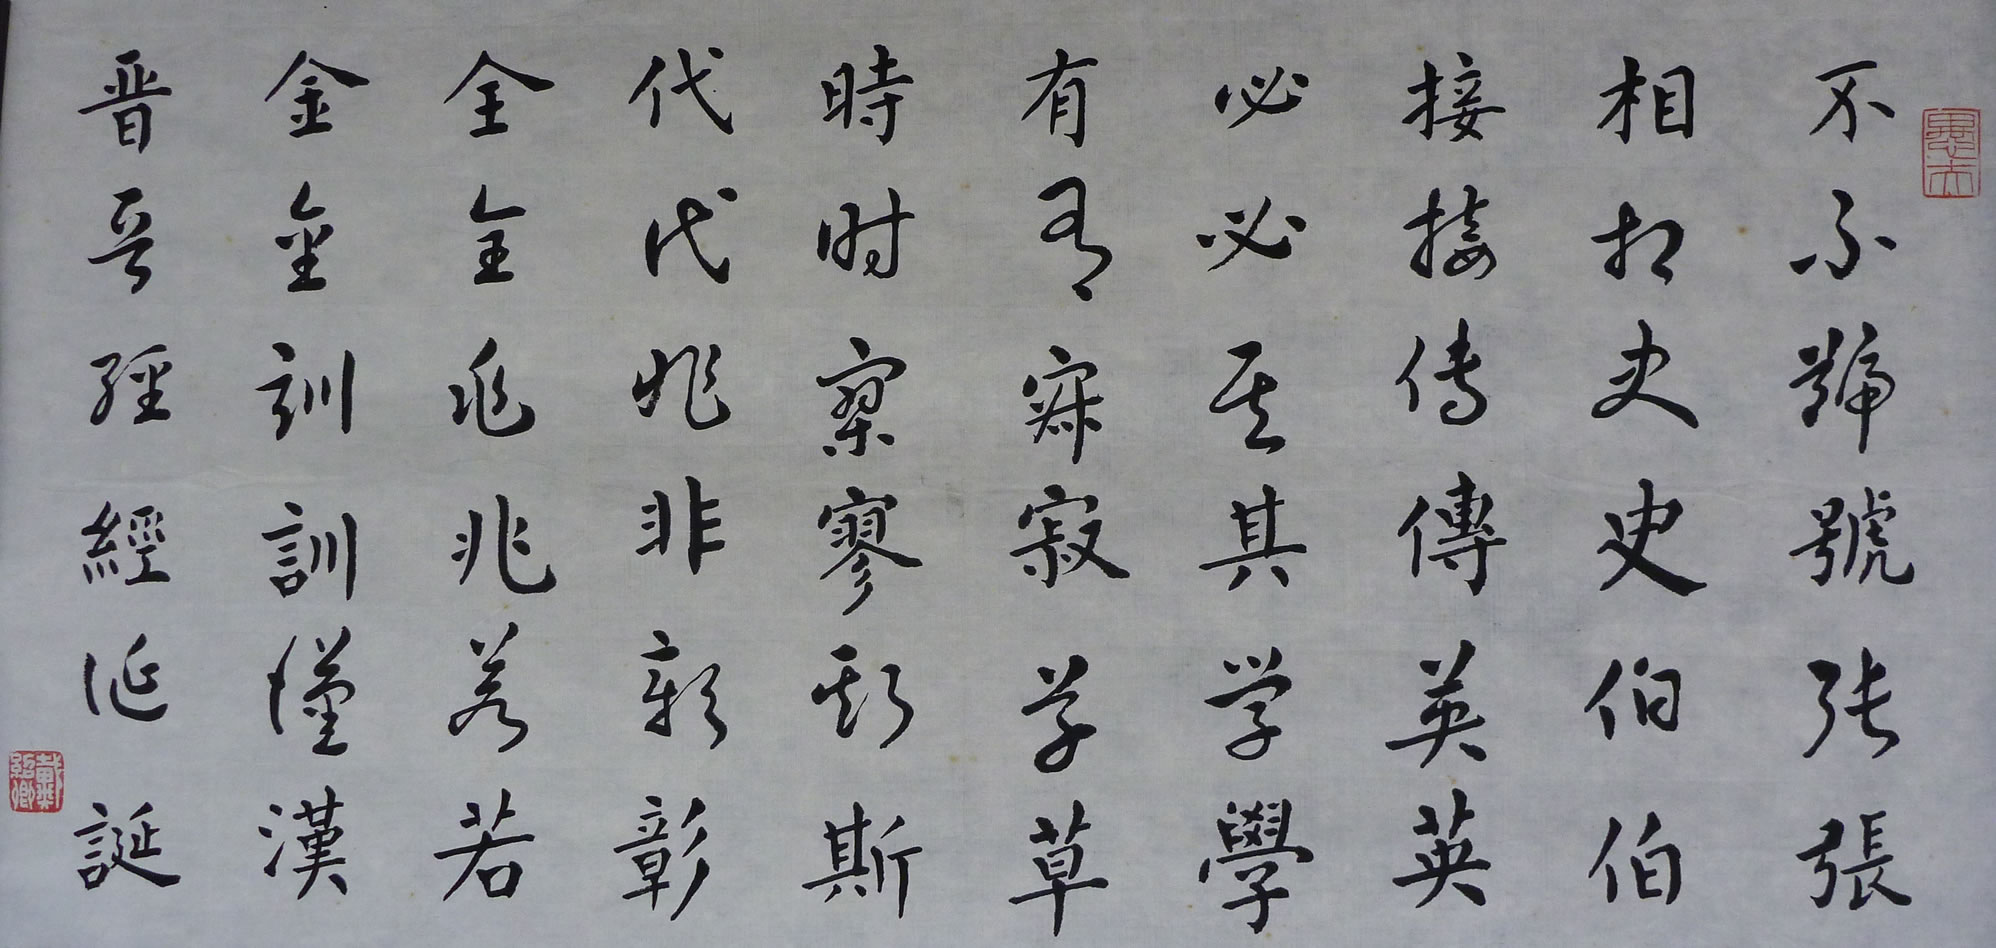 不不號號張張
相相史史伯伯
接接傳傳英英
必必其其學學
有有寂寂草草
時時寥寥斯斯
代代非非彰彰
全全兆兆若若
金金訓訓漢漢
晉晉經經誕誕
戴紹卿